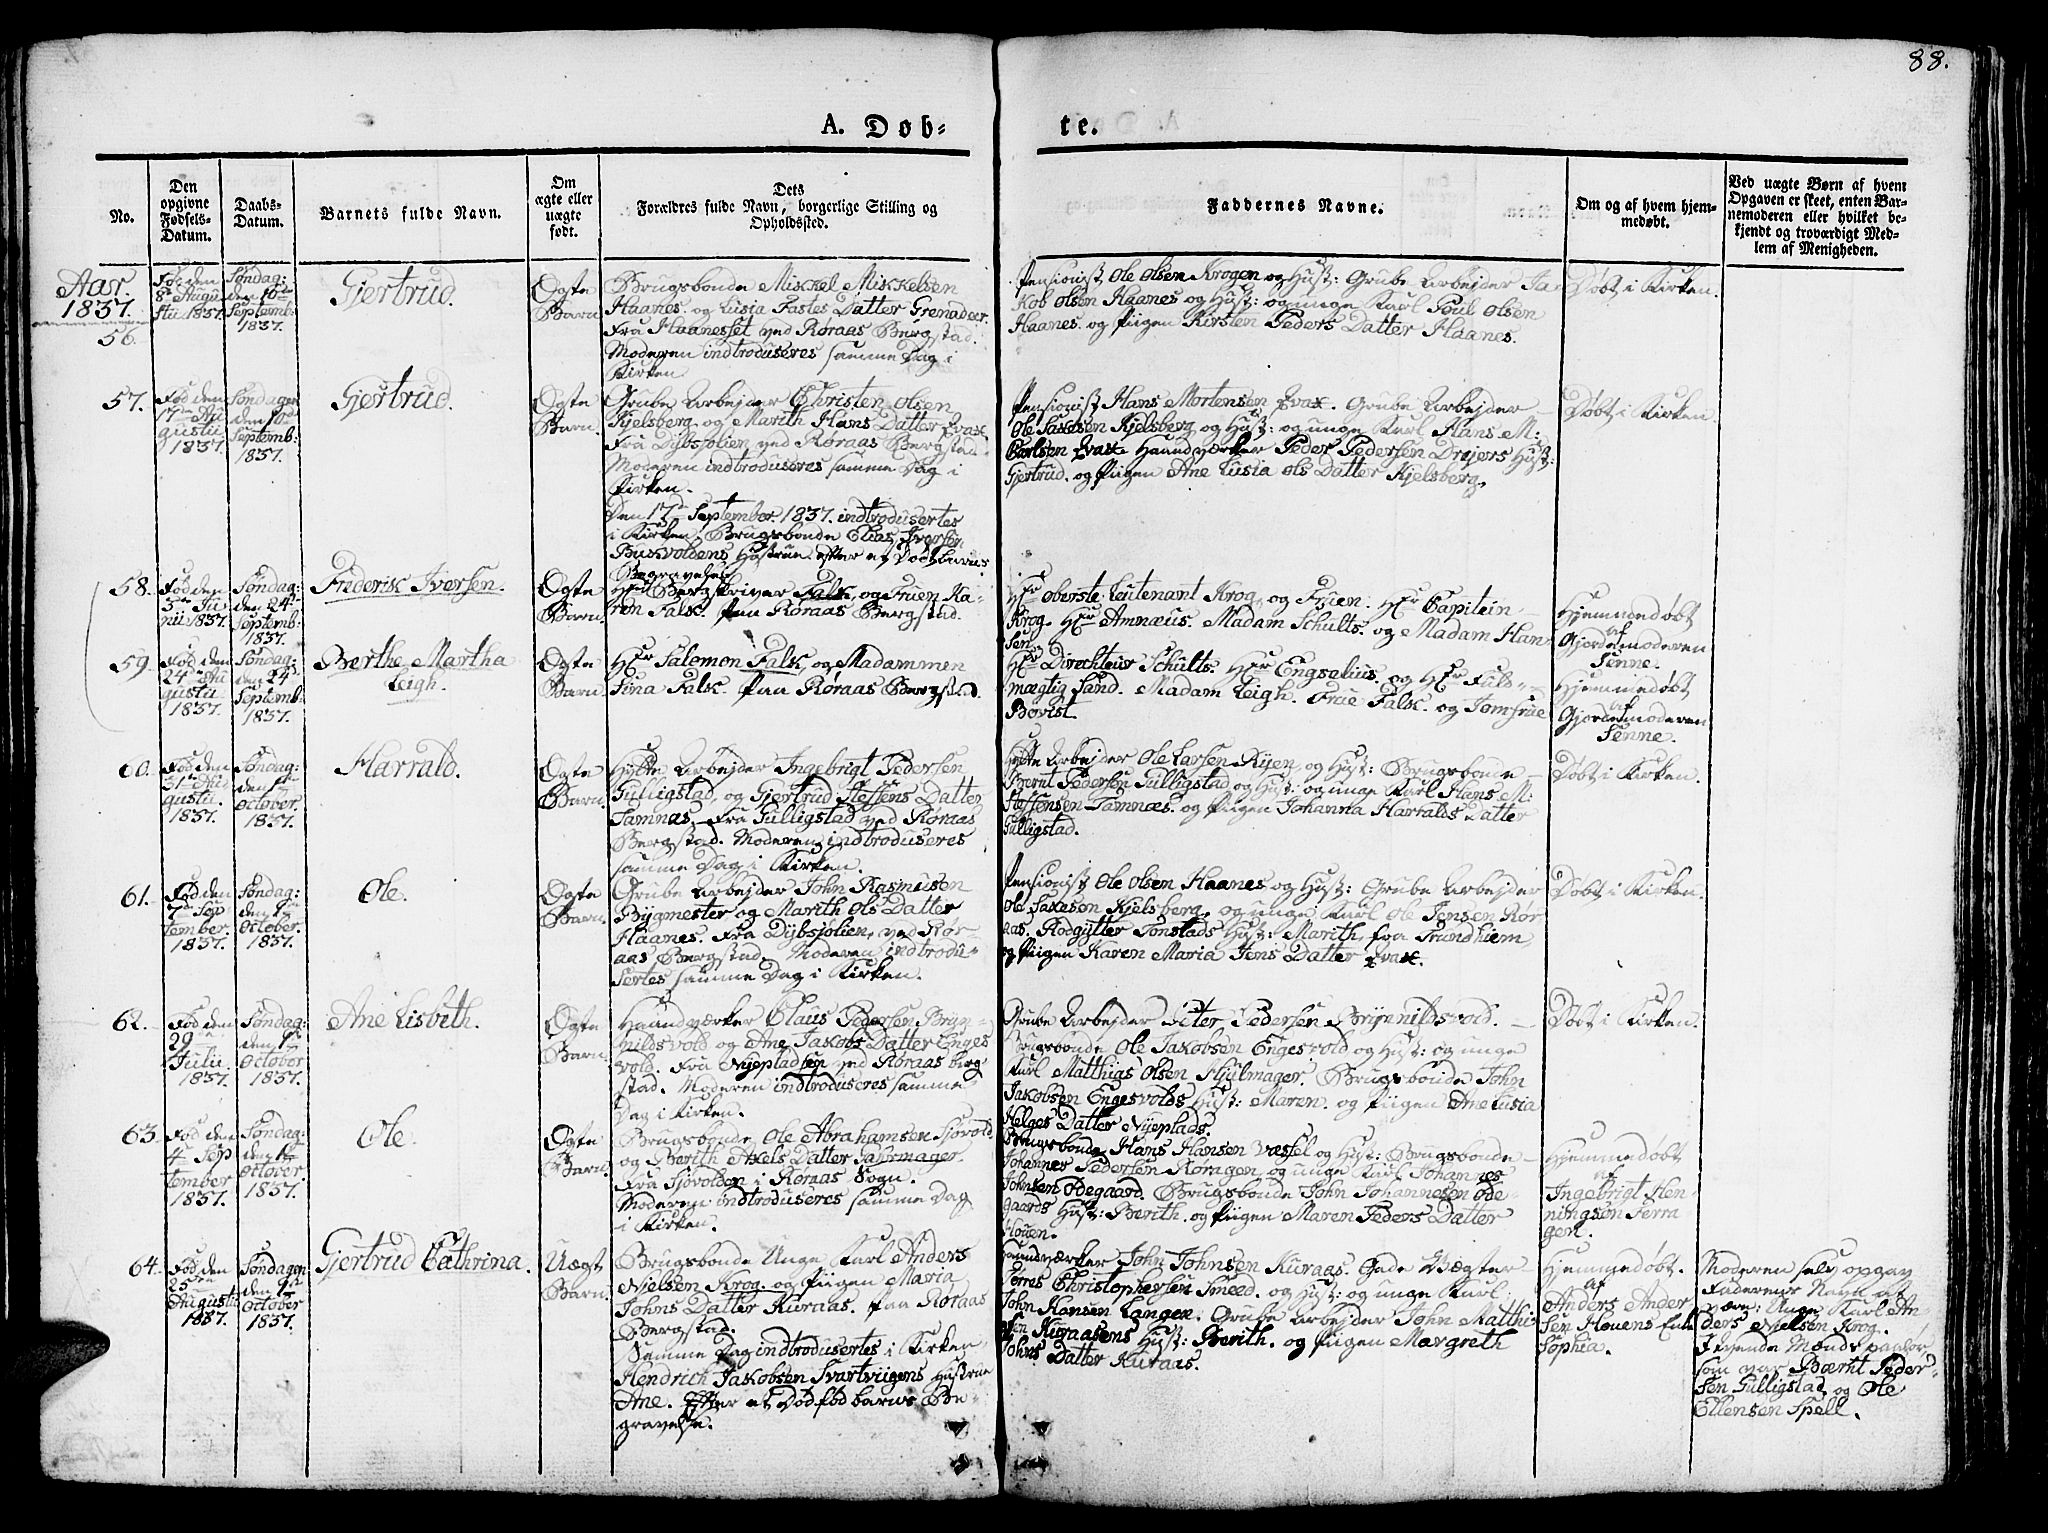 88.
A. Døb-
te.
No.
Den
opgivne
Fødsels-
Datum.
Daabs-
Datum.
Barnets fulde Navn.
Om
ægte eller
uægte
født.
Dets
Forældres fulde Navn, borgerlige Stilling og
Opholdssted.
Faddernes Navne.
Om og af hvem hjem-
medøbt.
Ved uægte Børn af hvem
Opgaven er skeet, enten Bar-
nemoderen eller hvilket be-
kjendt og troværdigt Med-
lem af Menigheden.
Aar
1837.
56.
Fød den
8de Augu
stii 1837.
Søndag:
den 10de
Septemb:
1837.
Gjertrud.
Ægte
Barn
Brugsbonde Mikkel Mikkelsen
Haanes. og Lusia Fastes Datter Grenadeer.
fra Haanesset ved Røraas Bergstad.
Moderen indtroduseres samme Dag i
Kirken.
Pensionist Ole Olsen Krogen og Hust: Grube Arbejder Ja-
kob Olsen Haanes og Hust: og unge Karl Poul Olsen
Haanes. og Piigen Kirsten Peders Datter Haanes.
Døbt i Kirken.
57.
Fød den
17de Au
gustii
1837.
Søndagen
den 10de
Septemb:
1837.
Gjertrud.
Ægte
Barn.
Grube Arbejder Christen Olsen
Kjelsberg. og Marith Hans Datter Evax.
fra Dybsjølien ved Røraas Bergstad.
Moderen indtroduseres samme Dag i
Kirken.
Den 17de September. 1837. indtrodusertes
i Kirken, Brugsbonde Elias Iversen
Buskvoldens Hustrue. efter et Død: barns
Begravelse
Pensionist Hans Mortensen Evax. Grube Arbejder
Ole Saxesen Kjelsberg og Hust: og unge Karl Hans M:
Carlsen Evax Haandværker Peder Pedersen Drejers Hust:
Gjertrud. og Piigen Ane Lusia Ols Datter Kjelsberg.
Døbt i Kirken
58.
Fød den
5te Ju
nii 1837.
Søndag:
den 24.
Septemb:
1837.
Frederisk Iversen.
Ægte
Barn.
Hr Bergskriver Falk, og Fruen Ka-
ren Falk. Paa Røraas Bergstad.
Hr Oberste Leutenant Krog, og Fruen. Hr Capitein
Krog. Hr Amnæus. Madam Schults. og Madam Han-
sen.
Hjemmedøbt
af
Gjordemoderen
Senne.
59.
Fød den
24de Au
gustii
1837.
Søndag:
den 24de
Septemb:
1837.
Berthe Martha
Leigh.
Ægte
Barn.
Hr Salomon Falk, og Madammen
Sina Falk. Paa Røraas Bergstad.
Hr Direchteur Schults. Hr Engselius. og Hr Fuld-
mægtig Sand. Madam Leigh. Frue Falk. og Jomfrue
Bovist.
Hjemmedøbt
af
Gjordemoderen
Senne.
60.
Fød den
31te Au
gustii.
1837.
Søndag:
den 1te
October.
1837.
Harrald.
Ægte
Barn.
Hytte Arbejder Ingebrigt Pedersen
Gulligstad, og Gjertrud Steffens Datter
Tamnæs. fra Gulligstad ved Røraas
Bergstad. Moderen indtroduseres
samme Dag i Kirken.
Hytte Arbejder Ole Larsen Ryen og Hust: Brugsbonde
Bernt Pedersen Gulligstad og Hust: og unge Karl Hans M:
Steffensen Tamnæs. og Piigen Johanna Harralds Datter
Gulligstad.
Døbt i Kirken.
61.
Fød den
7de Sep
tember.
1837.
Søndag:
den 1te
October.
1837.
Ole.
Ægte
Barn.
Grube Arbejder John Rasmusen
Bygmester og Marith Ols Datter
Haanes. fra Dybsjølien, ved Rør-
aas Bergstad. Moderen indtrodu-
sertes samme Dag i Kirken.
Pensionist Ole Olsen Haanes og Hust: Grube Arbejder
Ole Saxesen Kjelsberg, og unge Karl Ole Jensen Rør
aas. Rodgytter Tonstads Hust: Marith, fra Trundhiem
og Piigen Karen Maria Jens Datter Evax.
Døbt i Kirken.
62.
Fød den
29
Julii
1837.
Søndag:
den 1te
October
1837.
Ane Lisbith.
Ægte
Barn.
Haandværker Claus Pedersen Bryn-
nildsvold og Ane Jakobs Datter Enges
vold. fra Nyepladsen ved Røraas Berg-
stad. Moderen indtroduseres samme
Dag i Kirken.
Grube Arbejder Peter Pedersen Brynnildsvold.
Brugsbonde Ole Jakobsen Engesvold og Hust: og unge
Karl Matthias Olsen Hjulmager. Brugsbonde John
Jakobsen Engesvolds Hust: Maren. og Piigen Ane Lusia
Helges Datter Nyeplads.
Døbt i Kirken.
63.
Fød den
4. Sep
tember
1837.
Søndag:
den 1te
October.
1837.
Ole.
Ægte
Barn.
Brugsbonde Ole Abrahamsen Sjøvold.
og Berith Axels Datter Safrmager.
fra Sjøvolden i Røraas Sogn.
Moderen indtroduseres samme Dag
i Kirken.
Brugsbonde Hans Hansen Vassel og Hust: Brugsbonde
Johannes Pedersen Koragen, og unge Karl Johannes
Johnsen Ødegaard. Brugsbonde John Johannesen Øde-
gaards Hust: Berith. og Piigen Maren Peders Datter
Houen.
Hjemmedøbt
af
Ingebrigt Hen-
ningsen Ferra
gen.
64.
Fød den
25de
Augustii
1837.
Søndagen
den 1te
October
1837.
Gjertrud Cathrina.
Uægt
Barn.
Brugsbonde Unge Karl Anders
Nielsen Krog. og Piigen Maria
Johns Datter Kuraas. Paa Røraas
Bergstad.
Samme Dag indtrodusertes i Kirken
Hendrich Jakobsen Svartviigens Hustrue
Ane. Efter et Dødfød barns Be-
gravelse.
Haandværker John Johnsen Kuraas. Gade Vægter
Peres Christophersen Smeed. og Hust: og unge Karl
John Hansen Langen. Grube Arbejder John Matthi-
sen Kuraasens Hust: Berith. og Piigen Margreth
Johns Datter Kuraas.
Hjemmedøbt.
af
Anders Ander
sen Houens Enke
Sophia.
Moderen selv opgav
Faderens Navn at
være: Unge Karl An-
ders Nielsen Krog.
Tvende Mænds paahør
som var Bærnt Peder-
sen Gulligstad og Ole
Ellensen Spell.